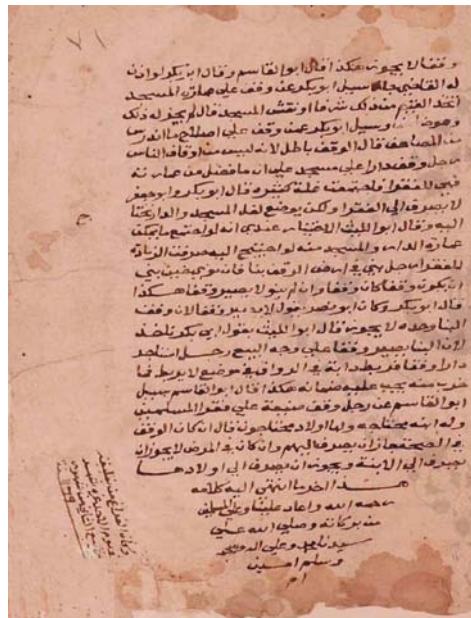 ٧١
وقفا لا يجوز هكذا قال ابو القاسم وقال ابو بكر لو اذن
له القاضي وسيل ابو بكر عن وقف على صلاح المسجد
اتخذ القيم من ذلك شرفا او نقش المسجد قال لم يجز له ذلك
وسيل ابو بكر عمن وقف على اصلاح ما اندرس
من المصاحف قال الوقف باطل لانه ليس من اوقاف الناس
رجل وقف دارا على مسجد على ان ما فضل من عمارته
فهي للفقرا فاجتمعت غلة كثيرة قال ابو بكر وابو جعفر
لا يصرف الى الفقرا ولكن يوضع لعل المسجد والدار يحتاج
اليه وقال ابو الليث الاختيار عندي انه لو اجتمع ما يمكن
عمارة الدار والمسجد منه لو احتيج اليه صرفت الزيادة
للفقرا رجل بنى في ارض الوقف بنا فان نوى حين بنى
ان يكون وقفا كان وقفا وان لم ينو لا يصير وقفا هكذا
قال ابو بكر وكان ابو نصر يقول لا يصير وقفا لان وقف
البنا وحده لا يجوز قال ابو الليث بقول ابي بكر ناخذ
لان البنا يصير وقفا على وجه البيع رجل استاجر
دارا وقفا فربط دابته في الرواق في موضع لا يربط فما
خرب منه يجب عليه ضمانه هكذا قال ابو القاسم سيل
ابو القاسم عن رجل وقف ضيعة على فقرا المسلمين
وله ابنة محتاجة ولها اولاد محتاجون قال ان كان الوقف
في الصحة جاز ان يصرف اليهم وان كان في المرض لا يجوز ان
يصرف الى الابنة ويجوز ان يصرف الى اولادها
هذا اخر ما انتهى اليه كلامه
رحمه الله واعاد علينا وعلى المسلمين
من بركاته وصلى الله على
سيدنا محمد وعلى اله وصحبه
وسلم امين
ام
وكان الفراغ من